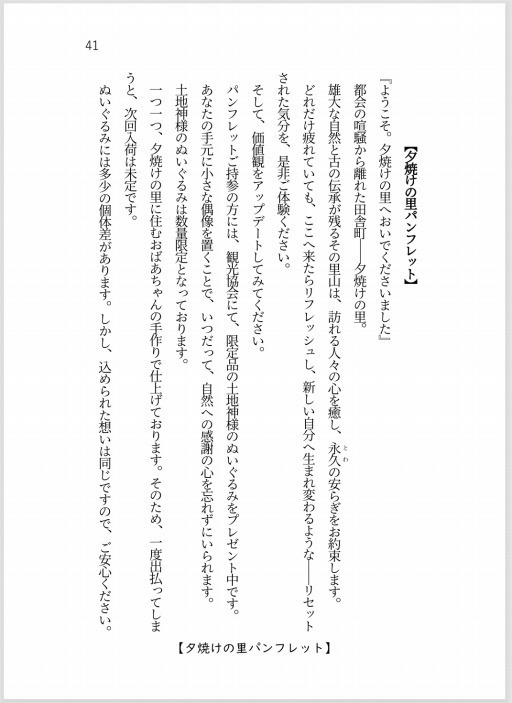 41
【夕焼けの里パンフレット】
『ようこそ。夕焼けの里へおいでくださいました』
都会の喧騒から離れた田舎町――夕焼けの里。
雄大な自然と古の伝承が残るその里山は、訪れる人々の心を癒し、永久の安らぎをお約束します。
とわ
どれだけ疲れていても、ここへ来たらリフレッシュし、新しい自分へ生まれ変わるような――リセット
された気分を、是非ご体験ください。
そして、価値観をアップデートしてみてください。
パンフレットご持参の方には、観光協会にて、限定品の土地神様のぬいぐるみをプレゼント中です。
あなたの手元に小さな偶像を置くことで、いつだって、自然への感謝の心を忘れずにいられます。
土地神様のぬいぐるみは数量限定となっております。
一つ一つ、夕焼けの里に住むおばあちゃんの手作りで仕上げております。そのため、一度出払ってしま
うと、次回入荷は未定です。
ぬいぐるみには多少の個体差があります。しかし、込められた想いは同じですので、ご安心ください。
【夕焼けの里パンフレット】